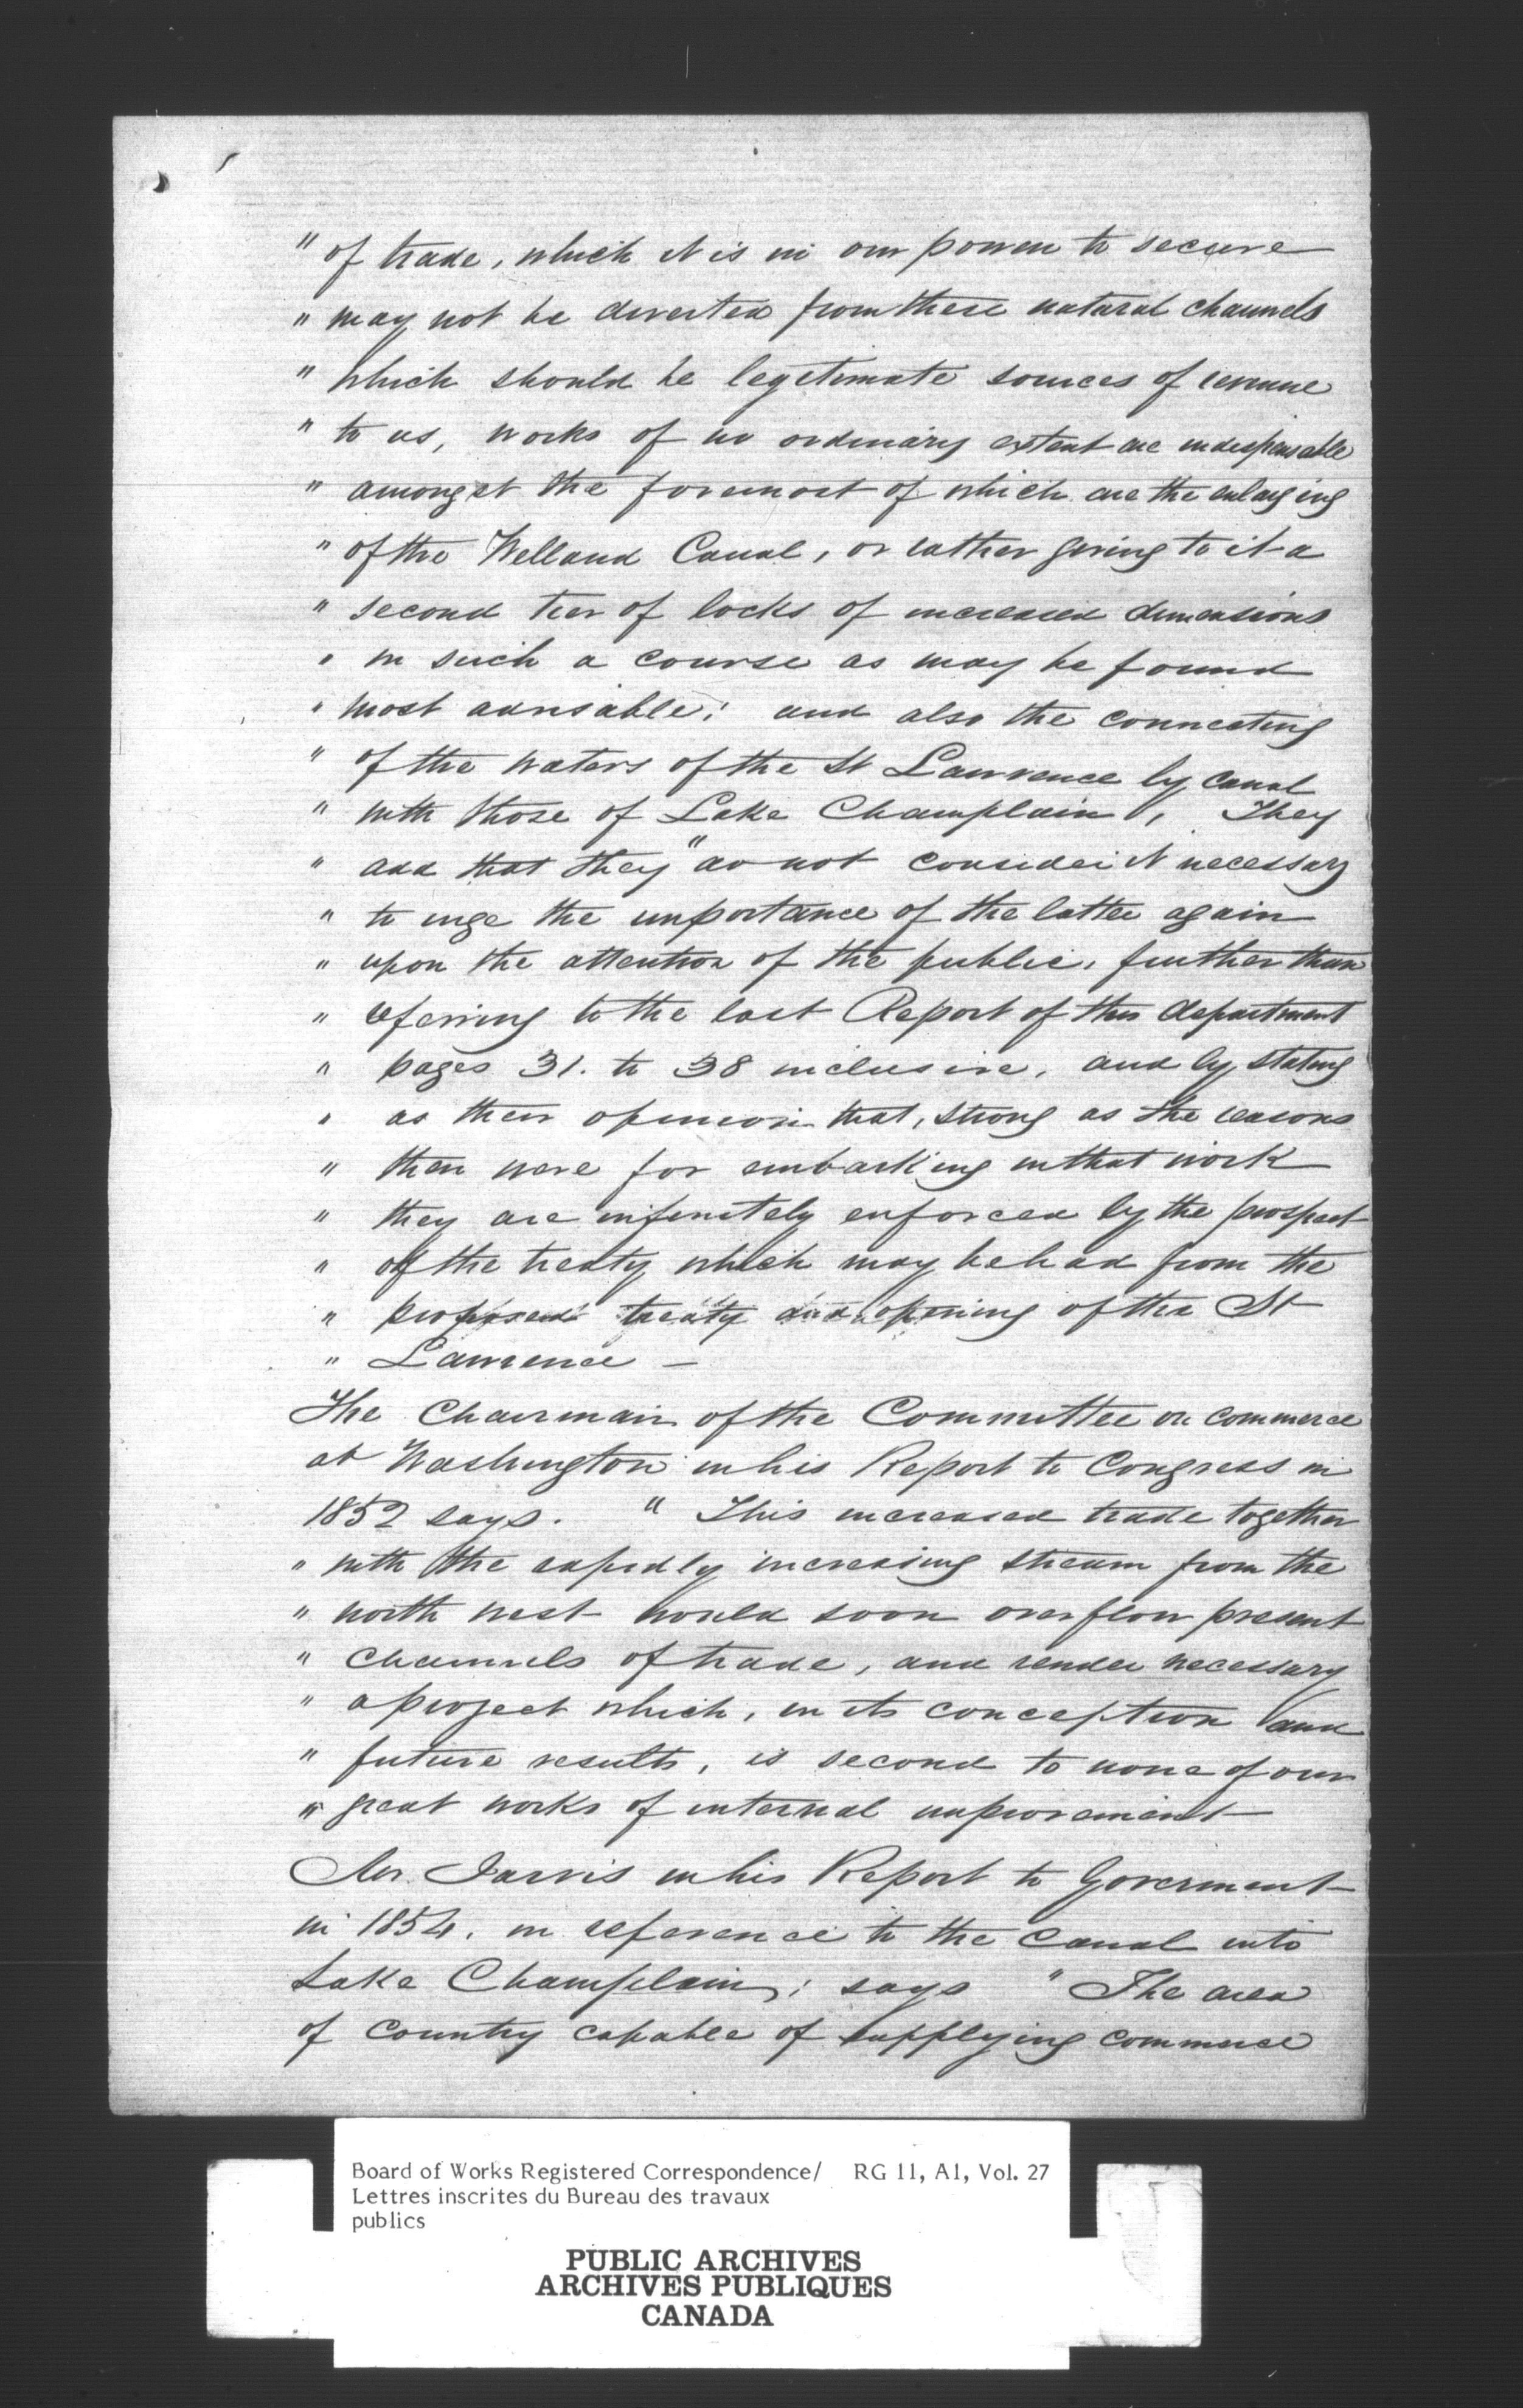 " of trade, which it is in our power to secure
" may not be diverted from these natural channels
" which should be legitimate sources of revenue
" to us, works of no ordinary extent are indispensable
" amongst the foremost of which are the enlarging
" of the Welland Canal, or rather giving to it a
" second tier of locks of increased dimensions
" in such a course as may be found
" most advisable; and also the connecting
" of the waters of the St Lawrence by canal
" with those of Lake Champlain, They
" add that they "do not consider it necessary
" to urge the importance of the latter again
" upon the attention of the public, further than
" referring to the last Report of this department
" pages 31. to 38 inclusive, and by stating
" as their opinion that, strong as the reasons
" then were for embarking in that work
" they are infinitely enforced by the prospect
" of the treaty which may be had from the
" proposed treaty and opening of the St
" Lawrence —
The Chairman of the Committee on commerce
at Washington in his Report to Congress in
1852 says. " This increased trade together
" with the rapidly increasing stream from the
" north west would soon overflow present
" channels of trade, and render necessary
" a project which, in its conception and
" future results, is second to none of our
" great works of internal improvement
Mr. Jarvis in his Report to Goverment
in 1854, in reference to the Canal into
Lake Champlain; says " The area
of country capable of supplying commerce
Board of Works Registered Correspondence/ RG 11, A1, Vol. 27
Lettres inscrites du Bureau des travaux
publics
PUBLIC ARCHIVES
ARCHIVES PUBLIQUES
CANADA